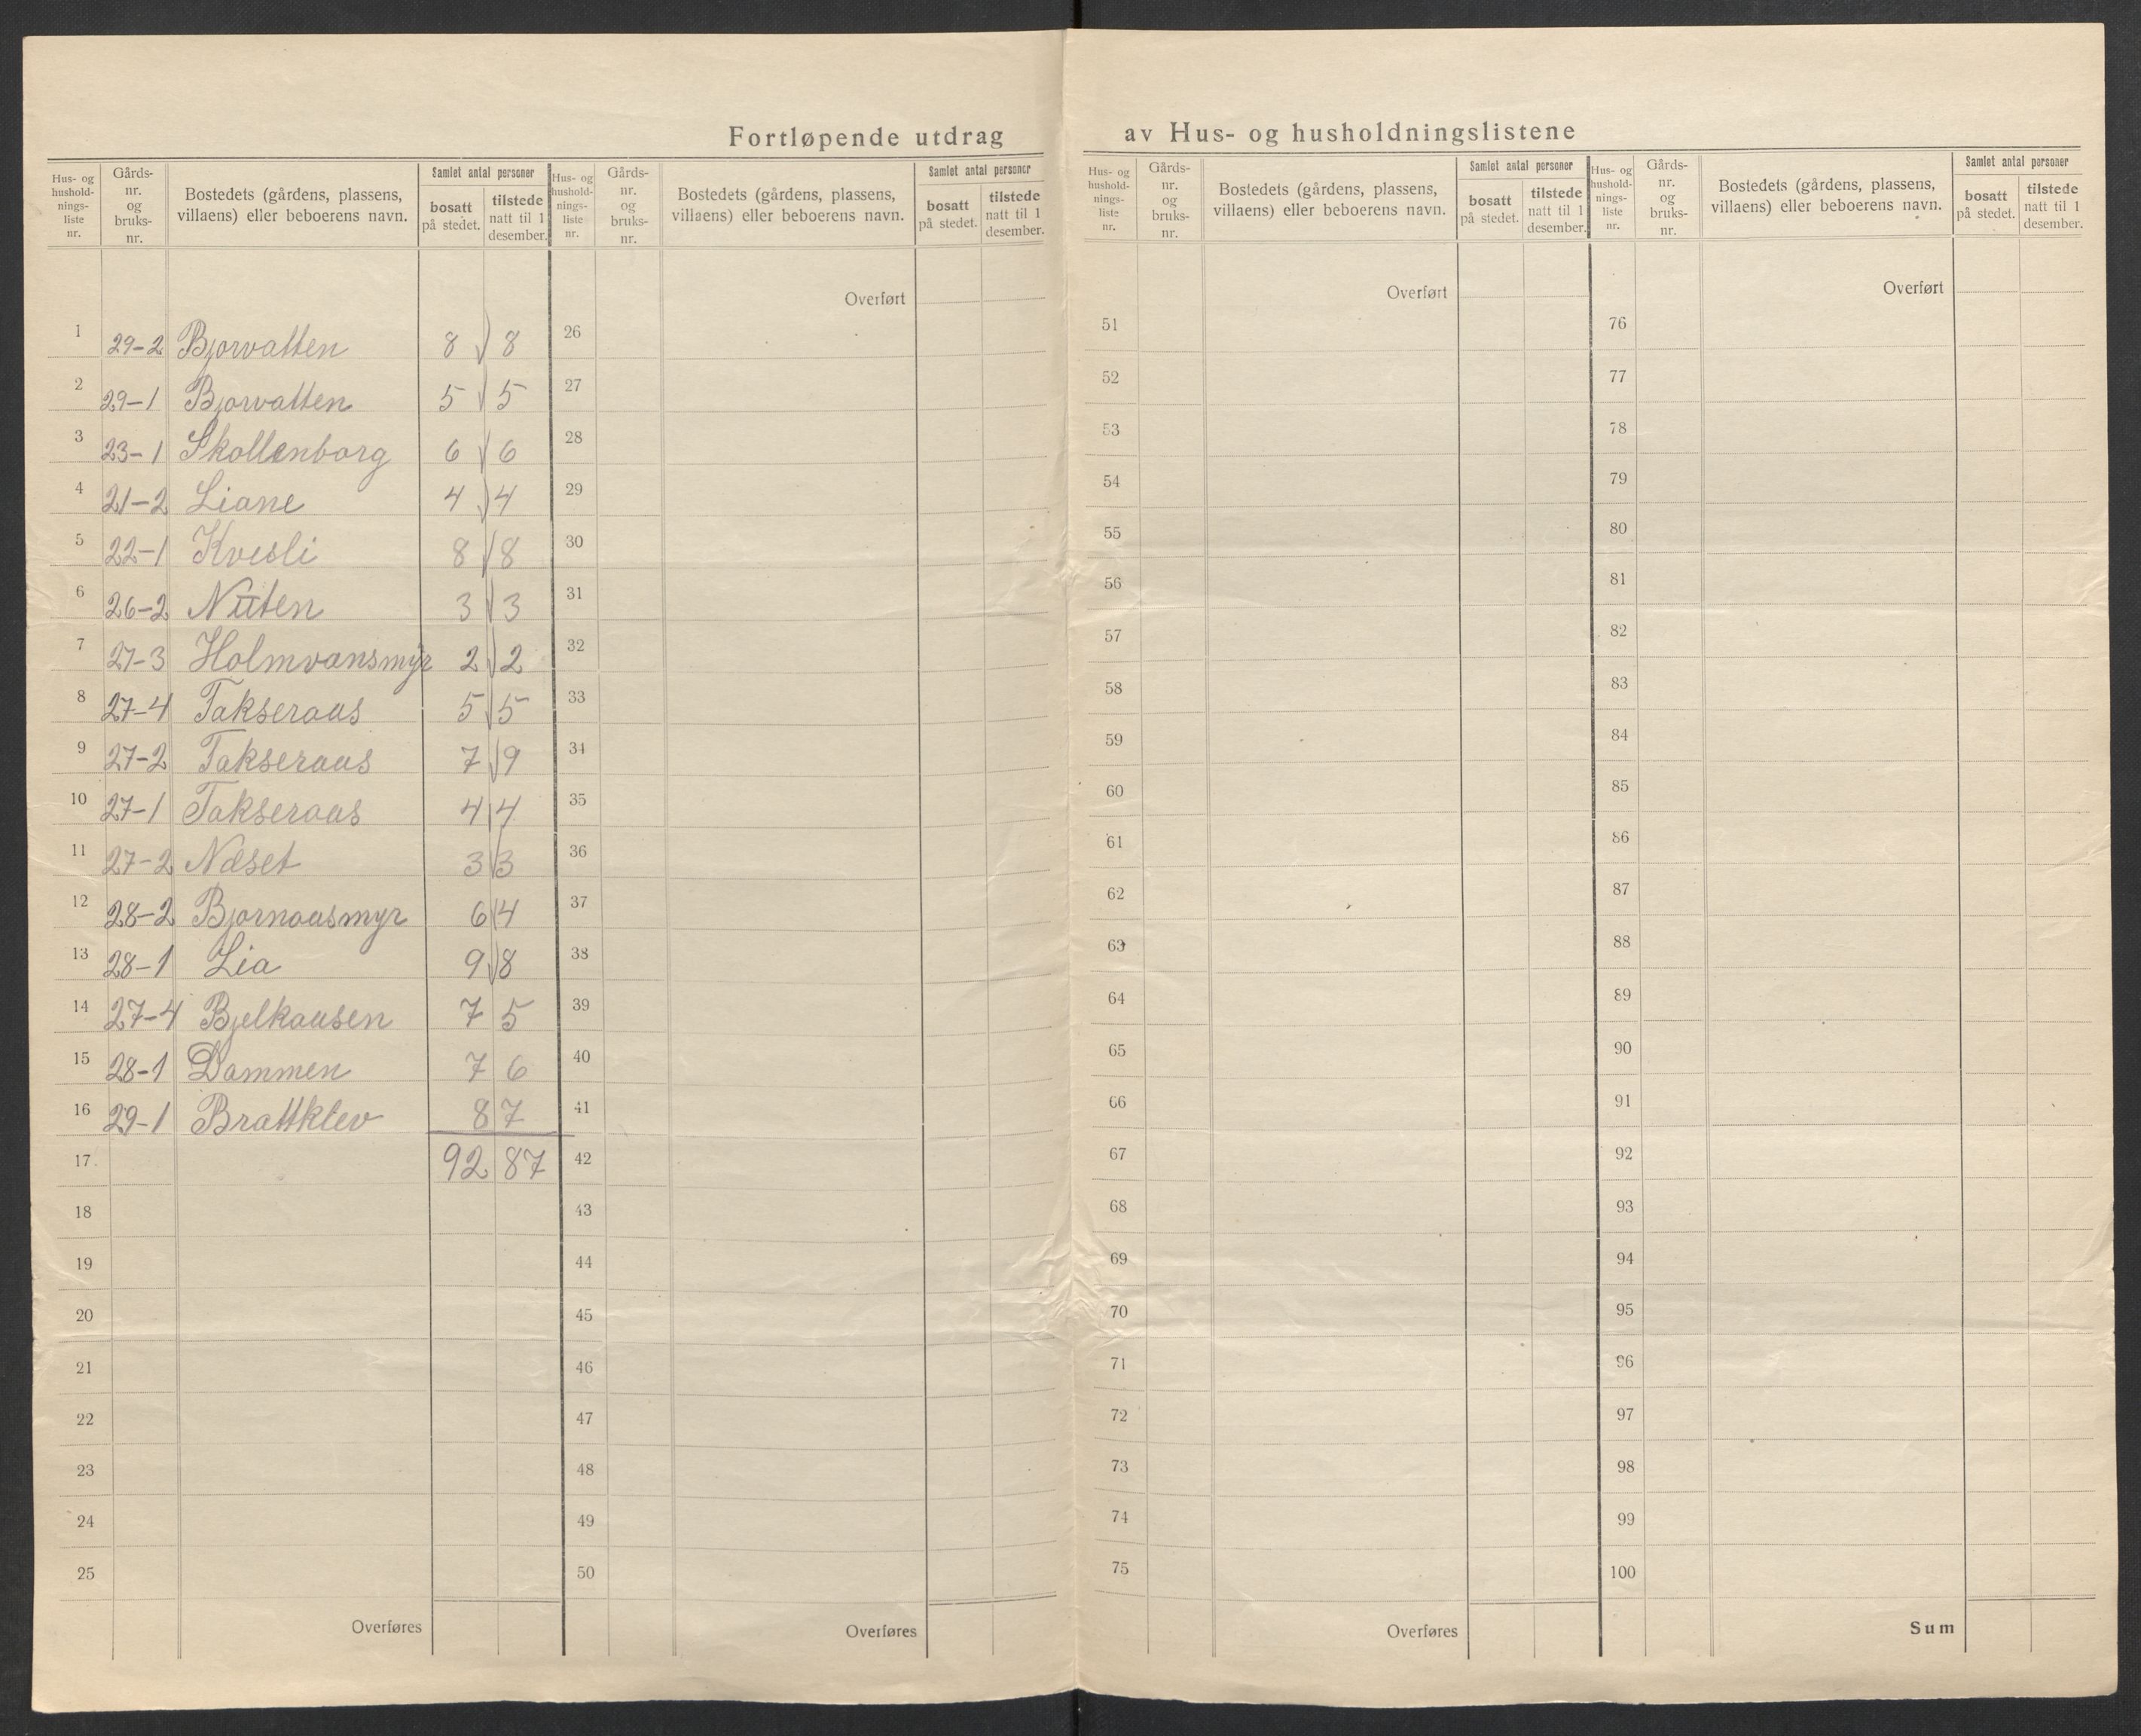 Fortløpende utdrag av Hus- og husholdningslistene
Hus- og hushold-nings-liste nr.
Gårds-nr. og bruks-nr.
Bostedets (gårdens, plassens, villaens) eller beboerens navn.
Samlet antal personer
bosatt på stedet.
tilstede natt til 1 desember.
Hus- og hushold-nings-liste nr.
Gårds-nr. og bruks-nr.
Bostedets (gårdens, plassens, villaens) eller beboerens navn.
Samlet antal personer
bosatt på stedet.
tilstede natt til 1 desember.
Hus- og hushold-nings-liste nr.
Gårds-nr. og bruks-nr.
Bostedets (gårdens, plassens, villaens) eller beboerens navn.
Samlet antal personer
bosatt på stedet.
tilstede natt til 1 desember.
Hus- og hushold-nings-liste nr.
Gårds-nr. og bruks-nr.
Bostedets (gårdens, plassens, villaens) eller beboerens navn.
Samlet antal personer
bosatt på stedet.
tilstede natt til 1 desember.
Overført Overført Overført
1 29-2 Bjorvatten 8 8 26 51 76
2 29-1 Bjorvatten 5 5 27 52 77
3 23-1 Skollenborg 6 6 28 53 78
4 21-2 Liane 4 4 29 54 79
5 22-1 Kvesli 8 8 30 55 80
6 26-2 Nuten 3 3 31 56 81
7 27-3 Holmvansmyr 2 2 32 57 82
8 27-4 Takseraas 5 5 33 58 83
9 27-2 Takseraas 7 9 34 59 84
10 27-1 Takseraas 4 4 35 60 85
11 27-2 Næset 3 3 36 61 86
12 28-2 Bjornaasmyr 6 4 37 62 87
13 28-1 Lia 9 8 38 63 88
14 27-4 Bjelkaasen 7 5 39 64 89
15 28-1 Dammen 7 6 40 65 90
16 29-1 Brattklev 8 7 41 66 91
17 92 87 42 67 92
18 43 68 93
19 44 69 94
20 45 70 95
21 46 71 96
22 47 72 97
23 48 73 98
24 49 74 99
25 50 75 100
Overføres Overføres Overføres Sum